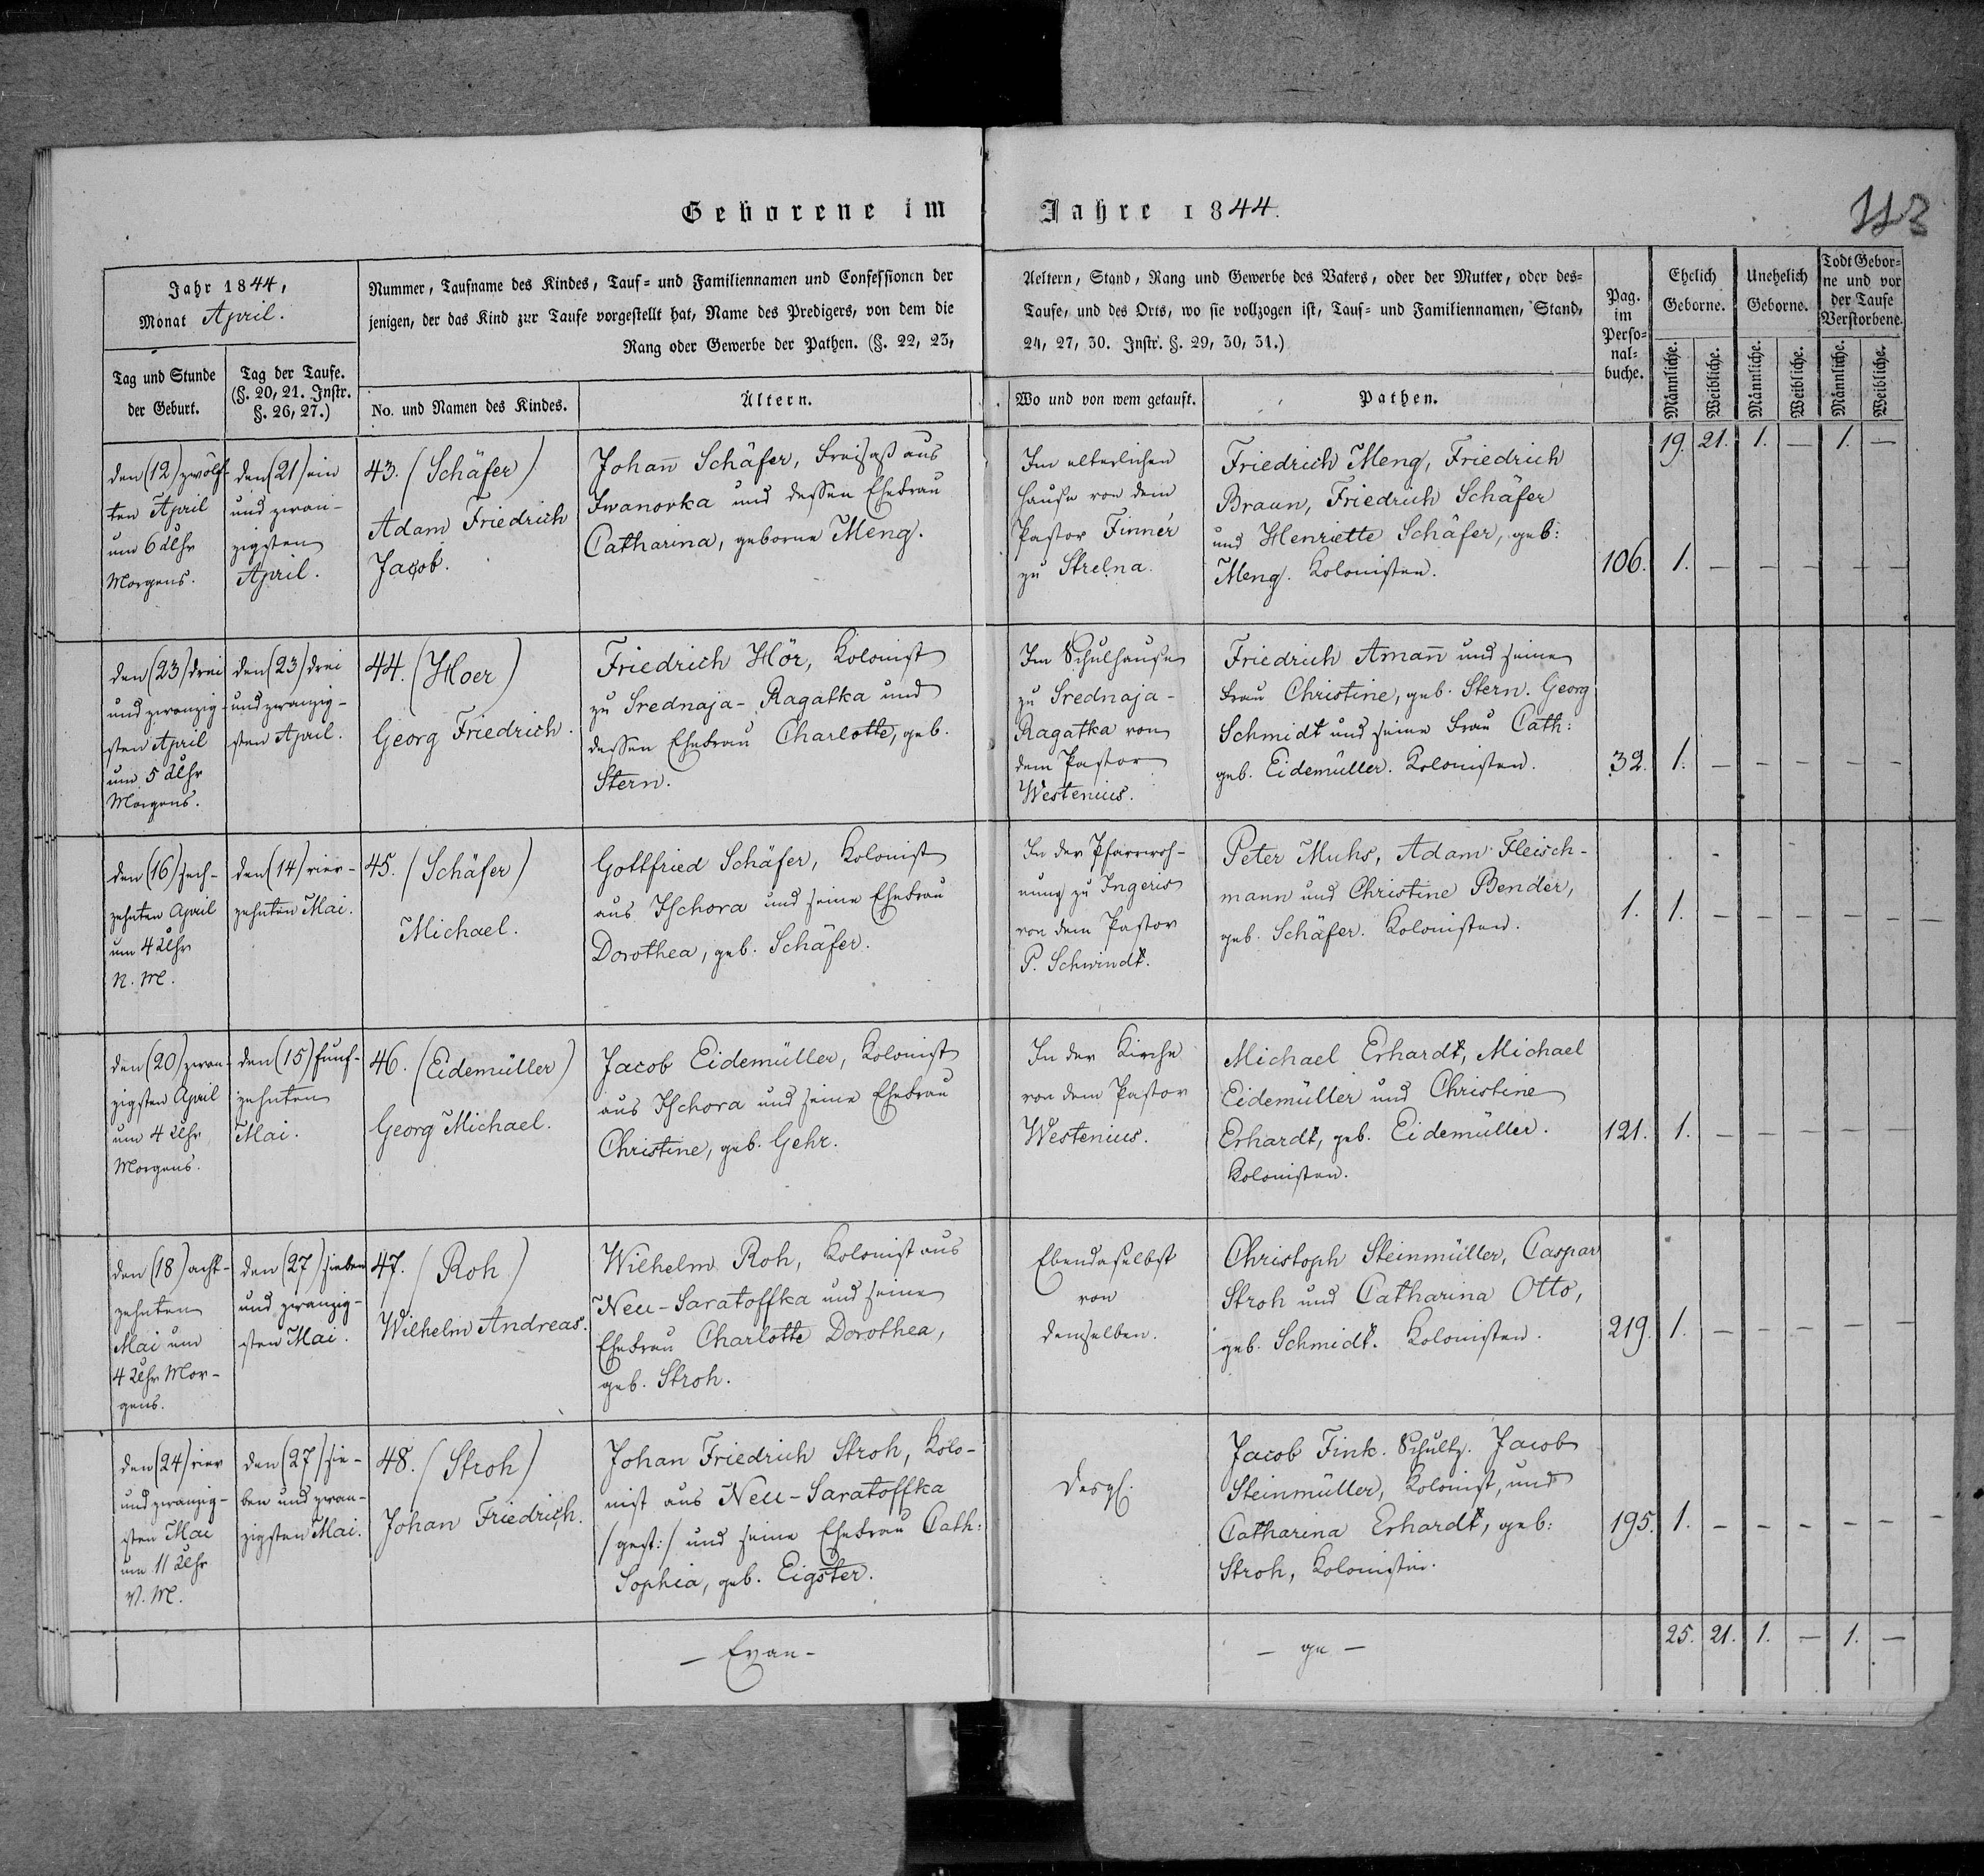 Geborene im Jahre 1844.
113
Jahr 1844,
Monat April.
Nummer, Taufname des Kindes, Tauf= und Familiennamen und Confessionen der Aeltern, Stand, Rang und Gewerbe des Vaters, oder der Mutter, oder des=
jenigen, der das Kind zur Taufe vorgestellt hat, Name des Predigers, von dem die Taufe, und des Orts, wo sie vollzogen ist, Tauf= und Familiennamen, Stand,
Rang oder Gewerbe der Pathen. (§. 22, 23, 24, 27, 30. Instr. §. 29, 30, 31.)
Tag und Stunde
der Geburt.
Tag der Taufe.
(§. 20, 21. Instr.
§. 26, 27.)
No. und Namen des Kindes.
Ältern.
Wo und von wem getauft.
Pathen.
Pag.
im
Perso=
nal=
buche.
Ehelich
Geborne.
Unehelich
Geborne.
Todt Gebor=
ne und vor
der Taufe
Verstorbene.
Männliche.
Weibliche.
Männliche.
Weibliche.
Männliche.
Weibliche.
19. 21. 1. — 1. —
den (12) zwölf-
ten April
um 6 Uhr
Morgens.
den (21) ein
und zwan-
zigsten
April.
43. (Schäfer)
Adam Friedrich
Jacob.
Johañ Schäfer, Freisaß aus
Iwanovka und dessen Ehefrau
Catharina, geborne Meng.
Im elterlichen
Hause von dem
Pastor Finnér
zu Strelna.
Friedrich Meng, Friedrich
Braun, Friedrich Schäfer
und Henriette Schäfer, geb:
Meng. Kolonisten.
106. 1. — — — — —
den (23) drei
und zwanzig-
sten April
um 5 Uhr
Morgens.
den (23) drei
und zwanzig-
sten April.
44. (Hoer)
Georg Friedrich.
Friedrich Hör, Kolonist
zu Srednaja-Ragatka und
dessen Ehefrau Charlotte, geb.
Stern.
Im Schulhause
zu Srednaja-
Ragatka von
dem Pastor
Westenius.
Friedrich Amañ und seine
Frau Christine, geb. Stern. Georg
Schmidt und seine Frau Cath:
geb. Eidemüller. Kolonisten.
32. 1. — — — — —
den (16) sech-
zehnten April
um 4 Uhr
N. M.
den (14) vier-
zehnten Mai.
45. (Schäfer)
Michael.
Gottfried Schäfer, Kolonist
aus Ischora und seine Ehefrau
Dorothea, geb. Schäfer.
In der Pfarrwoh-
nung zu Ingeris
von dem Pastor
P. Schwindt.
Peter Muhs, Adam Fleisch-
mann und Christine Bender,
geb. Schäfer. Kolonisten.
1. 1. — — — — — —
den (20) zwan-
zigsten April
um 4 Uhr
Morgens.
den (15) funf-
zehnten
Mai.
46. (Eidemüller)
Georg Michael.
Jacob Eidemüller, Kolonist
aus Ischora und seine Ehefrau
Christine, geb. Gehr.
In der Kirche
von dem Pastor
Westenius.
Michael Erhardt, Michael
Eidemüller und Christine
Erhardt, geb. Eidemüller.
Kolonisten.
121. 1. — — — — —
den (18) acht-
zehnten
Mai um
4 Uhr Mor-
gens.
den (27) sieben
und zwanzig-
sten Mai.
47. (Roh)
Wilhelm Andreas.
Wilhelm Roh, Kolonist aus
Neu-Saratoffka und seine
Ehefrau Charlotte Dorothea,
geb. Stroh.
Ebendaselbst
von
demselben.
Christoph Steinmüller, Caspar
Stroh und Catharina Otto,
geb. Schmidt. Kolonisten.
219. 1. — — — — —
den (24) vier
und zwanzig-
sten Mai
um 11 Uhr
V. M.
den (27) sie-
ben und zwan-
zigsten Mai.
48. (Stroh)
Johan Friedrich.
Johan Friedrich Stroh, Kolo-
nist aus Neu-Saratoffka
/gest:/ und seine Ehefrau Cath:
Sophia, geb. Eigster.
desgl.
Jacob Fink. Schultz. Jacob
Steinmüller, Kolonist, und
Catharina Erhardt, geb:
Stroh, Kolonistin.
195. 1. — — — — — —
— Evan-
— ge —
25. 21. 1. — 1. —